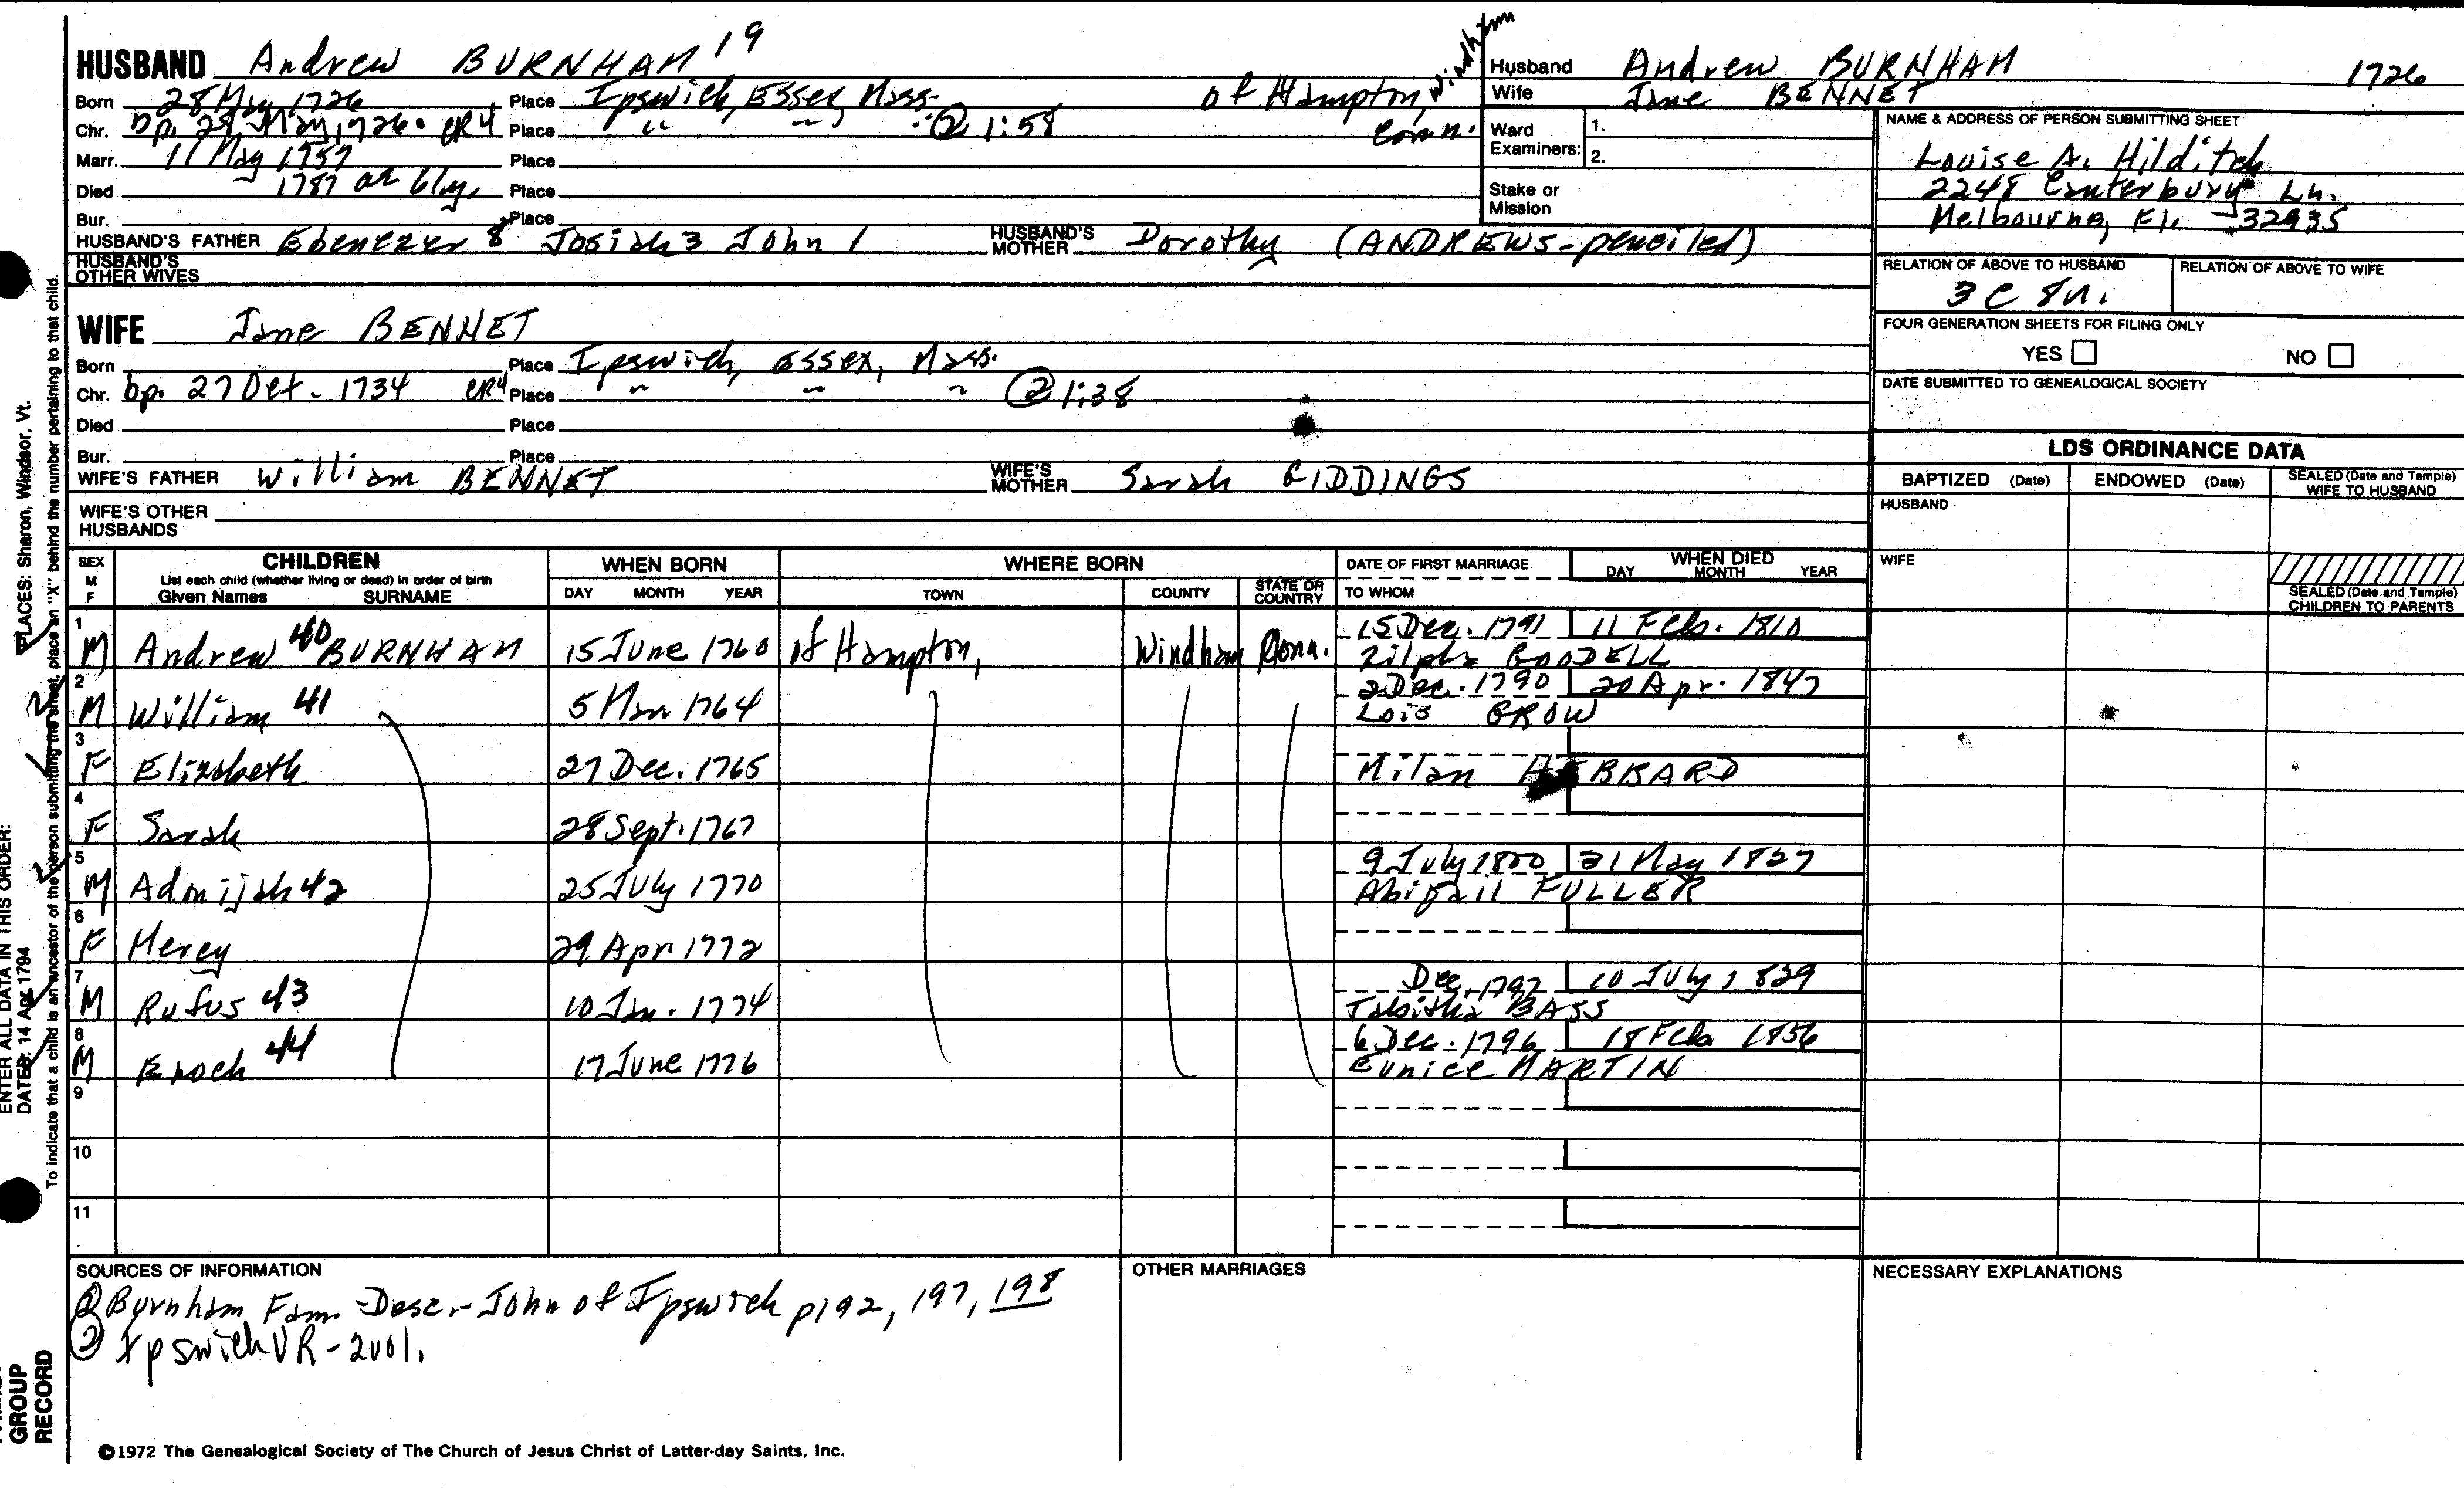 HUSBAND Andrew BURNHAM 19
Born 28 May 1726 Place Ipswich, Essex, Mass. of Hampton, Windham
Chr. bp. 29 May 1726. CR4 Place " " " ② 1:58 Conn.
Marr. 11 May 1757 Place
Died 1787 ae 61y. Place
Bur. Place
HUSBAND'S FATHER Ebenezer 8 Josiah 3 John 1 HUSBAND'S MOTHER Dorothy (ANDREWS-penciled)
HUSBAND'S OTHER WIVES
WIFE Jane BENNET
Born Place Ipswich, Essex, Mass.
Chr. bp. 27 Oct. 1734 CR4 Place " " " ② 1:38
Died Place
Bur. Place
WIFE'S FATHER William BENNET WIFE'S MOTHER Sarah GIDDINGS
WIFE'S OTHER HUSBANDS
Husband Andrew BURNHAM 1726
Wife Jane BENNET
Ward Examiners: 1.
2.
Stake or Mission
NAME & ADDRESS OF PERSON SUBMITTING SHEET
Louise A. Hilditch
2248 Canterbury Ln.
Melbourne, Fl. 32935
RELATION OF ABOVE TO HUSBAND RELATION OF ABOVE TO WIFE
3C 8
FOUR GENERATION SHEETS FOR FILING ONLY
YES NO
DATE SUBMITTED TO GENEALOGICAL SOCIETY
LDS ORDINANCE DATA
BAPTIZED (Date) ENDOWED (Date) SEALED (Date and Temple) WIFE TO HUSBAND
HUSBAND
WIFE
SEALED (Date and Temple) CHILDREN TO PARENTS
SEX M F CHILDREN WHEN BORN WHERE BORN DATE OF FIRST MARRIAGE WHEN DIED
List each child (whether living or dead) in order of birth
Given Names SURNAME DAY MONTH YEAR TOWN COUNTY STATE OR COUNTRY TO WHOM DAY MONTH YEAR
1 M Andrew 40 BURNHAM 15 June 1760 of Hampton, Windham Conn. 15 Dec. 1791 11 Feb. 1810
Zilpha GOODELL
2 M William 41 5 Mar 1764 2 Dec. 1790 20 Apr. 1847
Lois GROW
3 F Elizabeth 27 Dec. 1765
Milan HEBBARD
4 F Sarah 28 Sept. 1767
5 M Admijah 42 25 July 1770 9 July 1800 21 May 1827
Abigail FULLER
6 F Mercy 29 Apr 1772
7 M Rufus 43 10 Jan. 1774 Dec. 1797 10 July 1829
Tabitha BASS
8 M Enoch 44 17 June 1776 6 Dec. 1796 18 Feb 1856
Eunice MARTIN
9
10
11
SOURCES OF INFORMATION
① Burnham Fam. Desc. John of Ipswich p192, 197, 198
② Ipswich VR - 2vol.
OTHER MARRIAGES
NECESSARY EXPLANATIONS
©1972 The Genealogical Society of The Church of Jesus Christ of Latter-day Saints, Inc.
ENTER ALL DATA IN THIS ORDER:
DATES: 14 Apr 1794 PLACES: Sharon, Windsor, Vt.
To indicate that a child is an ancestor of the person submitting the sheet, place an "X" behind the number pertaining to that child.
GROUP
RECORD